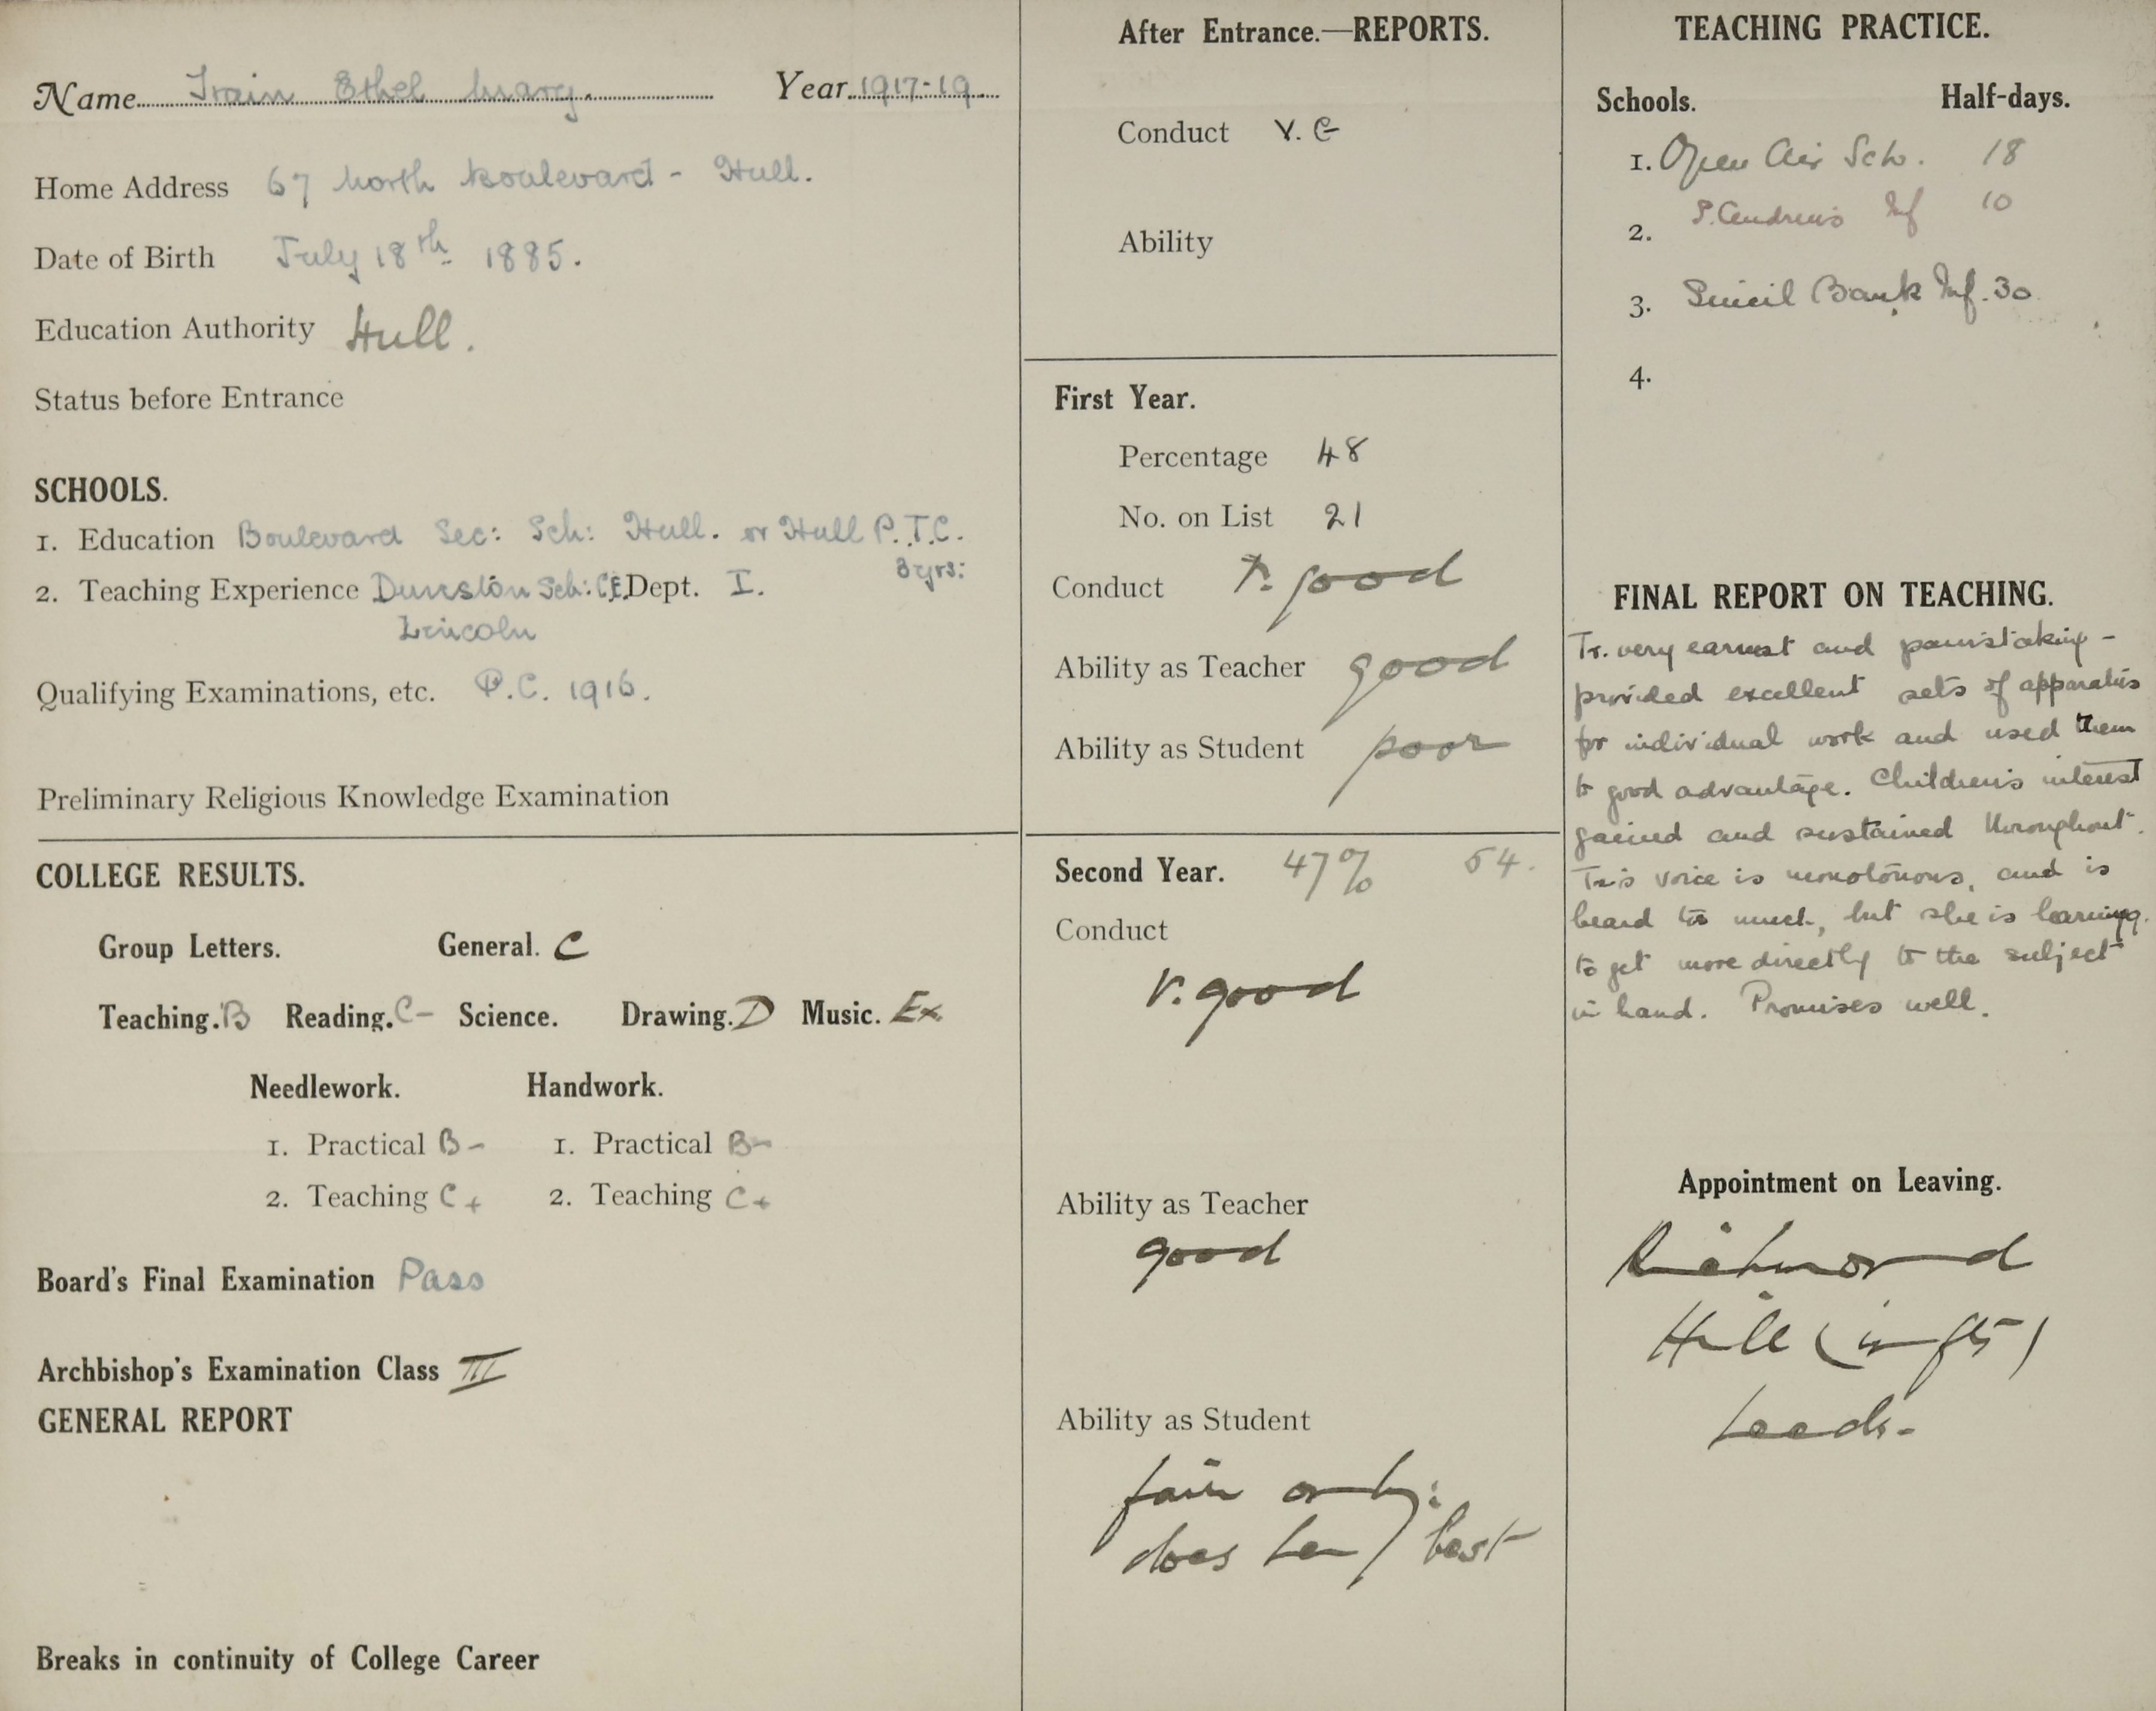 Name Train Ethel Mary. Year 1917-19
Home Address 67 North Boulevard - Hull.
Date of Birth July 18th 1885.
Education Authority Hull.
Status before Entrance
SCHOOLS.
1. Education Boulevard Sec: Sch: Hull. or Hull P.T.C.
3 yrs:
2. Teaching Experience Dunston Sch: C.E. Dept. I.
Lincoln
Qualifying Examinations, etc. P.C. 1916.
Preliminary Religious Knowledge Examination
COLLEGE RESULTS.
Group Letters. General. C
Teaching. B Reading. C- Science. Drawing. D Music. Ex.
Needlework. Handwork.
1. Practical B- 1. Practical B-
2. Teaching C+ 2. Teaching C+
Board's Final Examination Pass
Archbishop's Examination Class III
GENERAL REPORT
Breaks in continuity of College Career
After Entrance.—REPORTS.
Conduct V. G
Ability
First Year.
Percentage 48
No. on List 21
Conduct v. good
Ability as Teacher good
Ability as Student poor
Second Year. 47% 54.
Conduct
v. good
Ability as Teacher
good
Ability as Student
fair only:
does her best
TEACHING PRACTICE.
Schools. Half-days.
1. Open Air Sch. 18
2. S. Andrew's Inf 10
3. Sincil Bank Inf. 30
4.
FINAL REPORT ON TEACHING.
Tr. very earnest and painstaking -
provided excellent sets of apparatus
for individual work and used them
to good advantage. Children's interest
gained and sustained throughout.
Tr's voice is monotonous, and is
heard too much, but she is learning
to get more directly to the subject
in hand. Promises well.
Appointment on Leaving.
Richmond
Hill (infts)
Leeds-